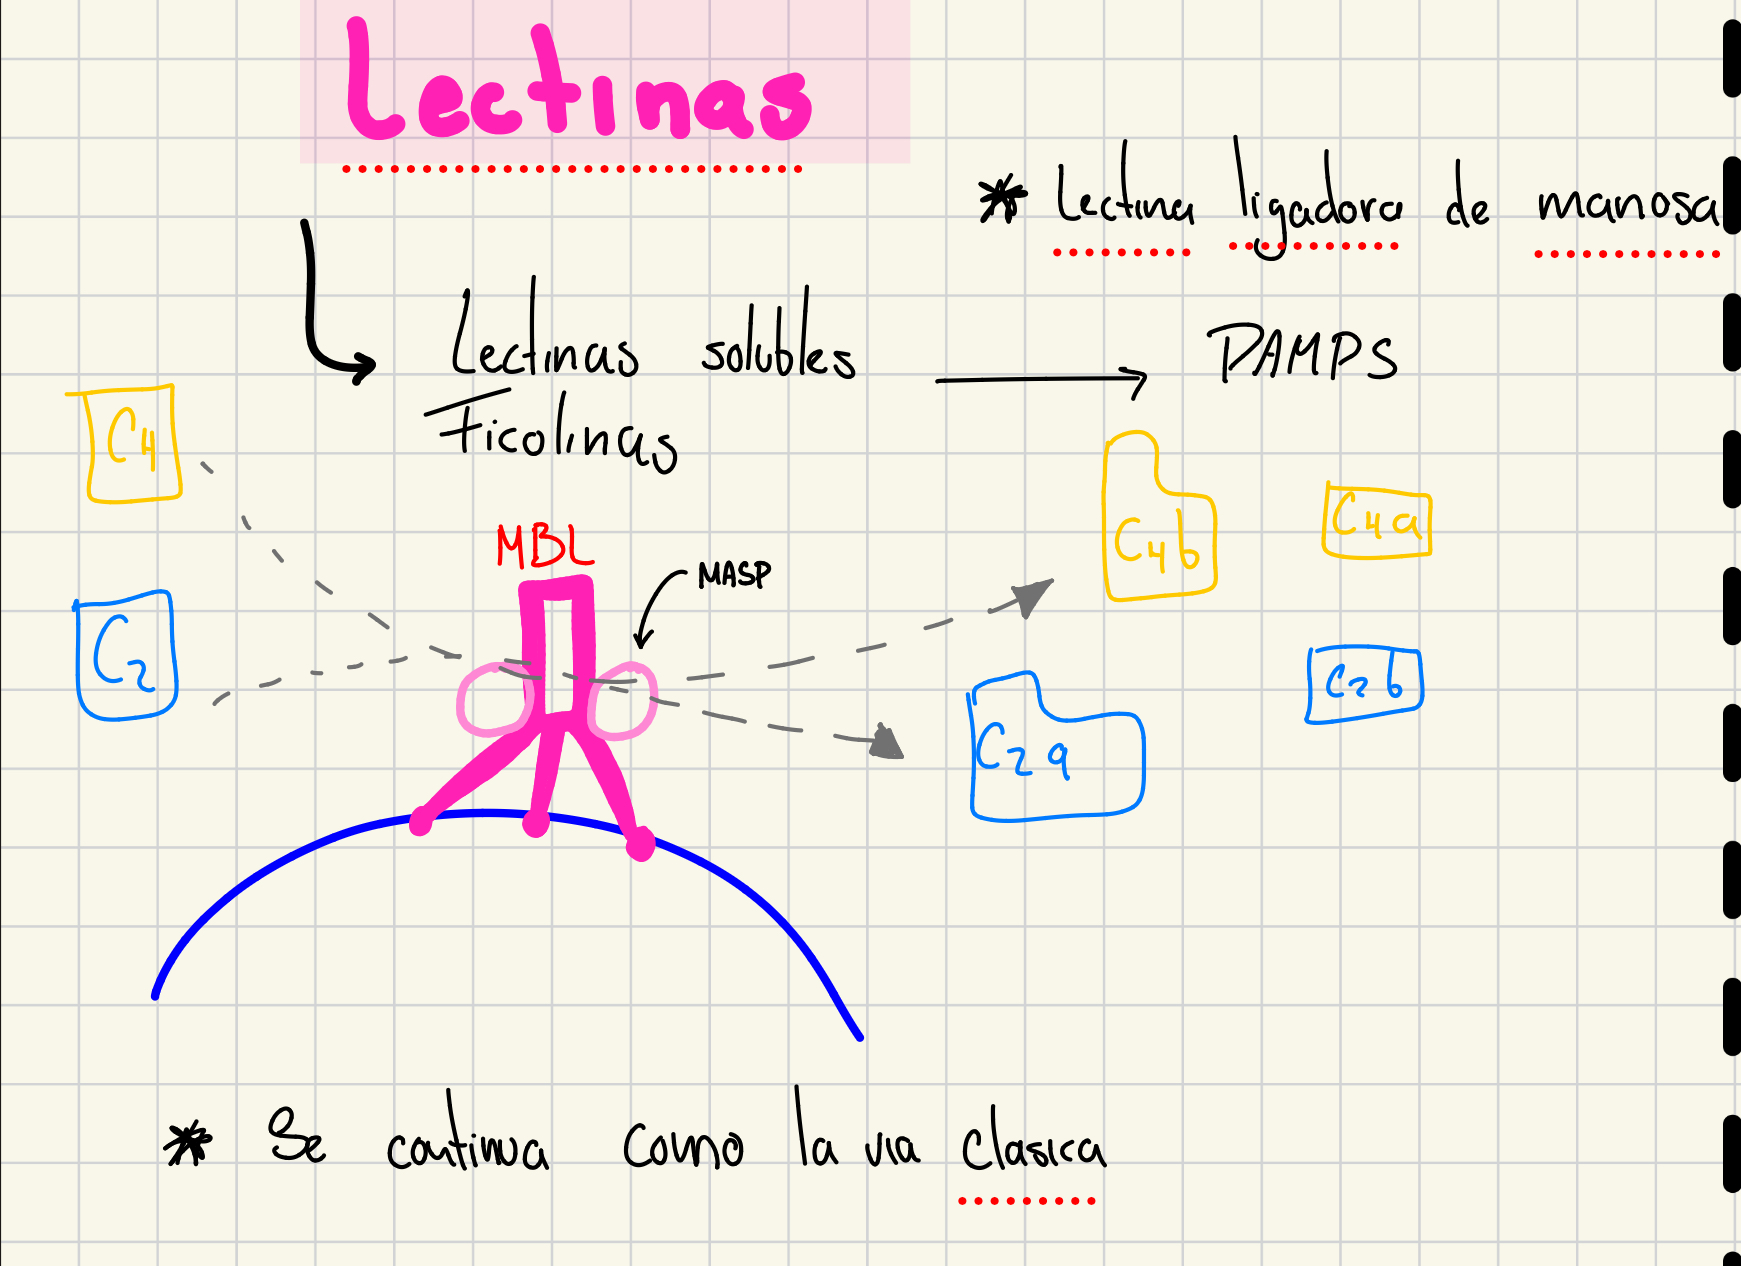 Lectinas
* Lectina ligadora de manosa
Lectinas solubles → PAMPS
Ficolinas
C4
C4b
C4a
MBL
MASP
C2
C2b
C2a
* Se continua como la via clasica